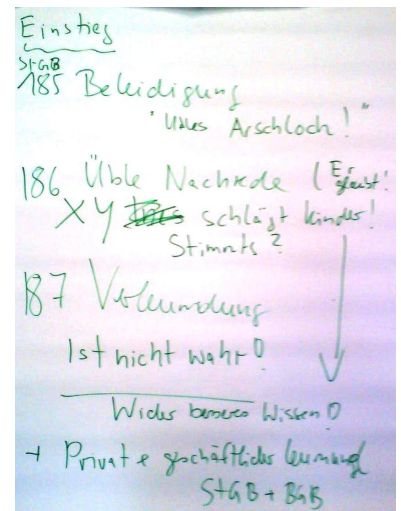 Einstieg
StGB
185 Beleidigung
"Übles Arschloch!"
186 Üble Nachrede (Er glaubt!
XY schlägt Kinder!
Stimmts?
187 Verleumdung
Ist nicht wahr!
Wider besseres Wissen!
+ Private geschäftlicher Leumund
StGB + BGB